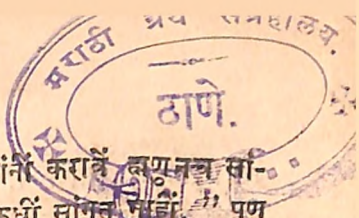 मराठी ग्रंथ संग्रहालय.
ठाणे.
करावें म्हणूनच सां-
सांगत नाहीं. " पण